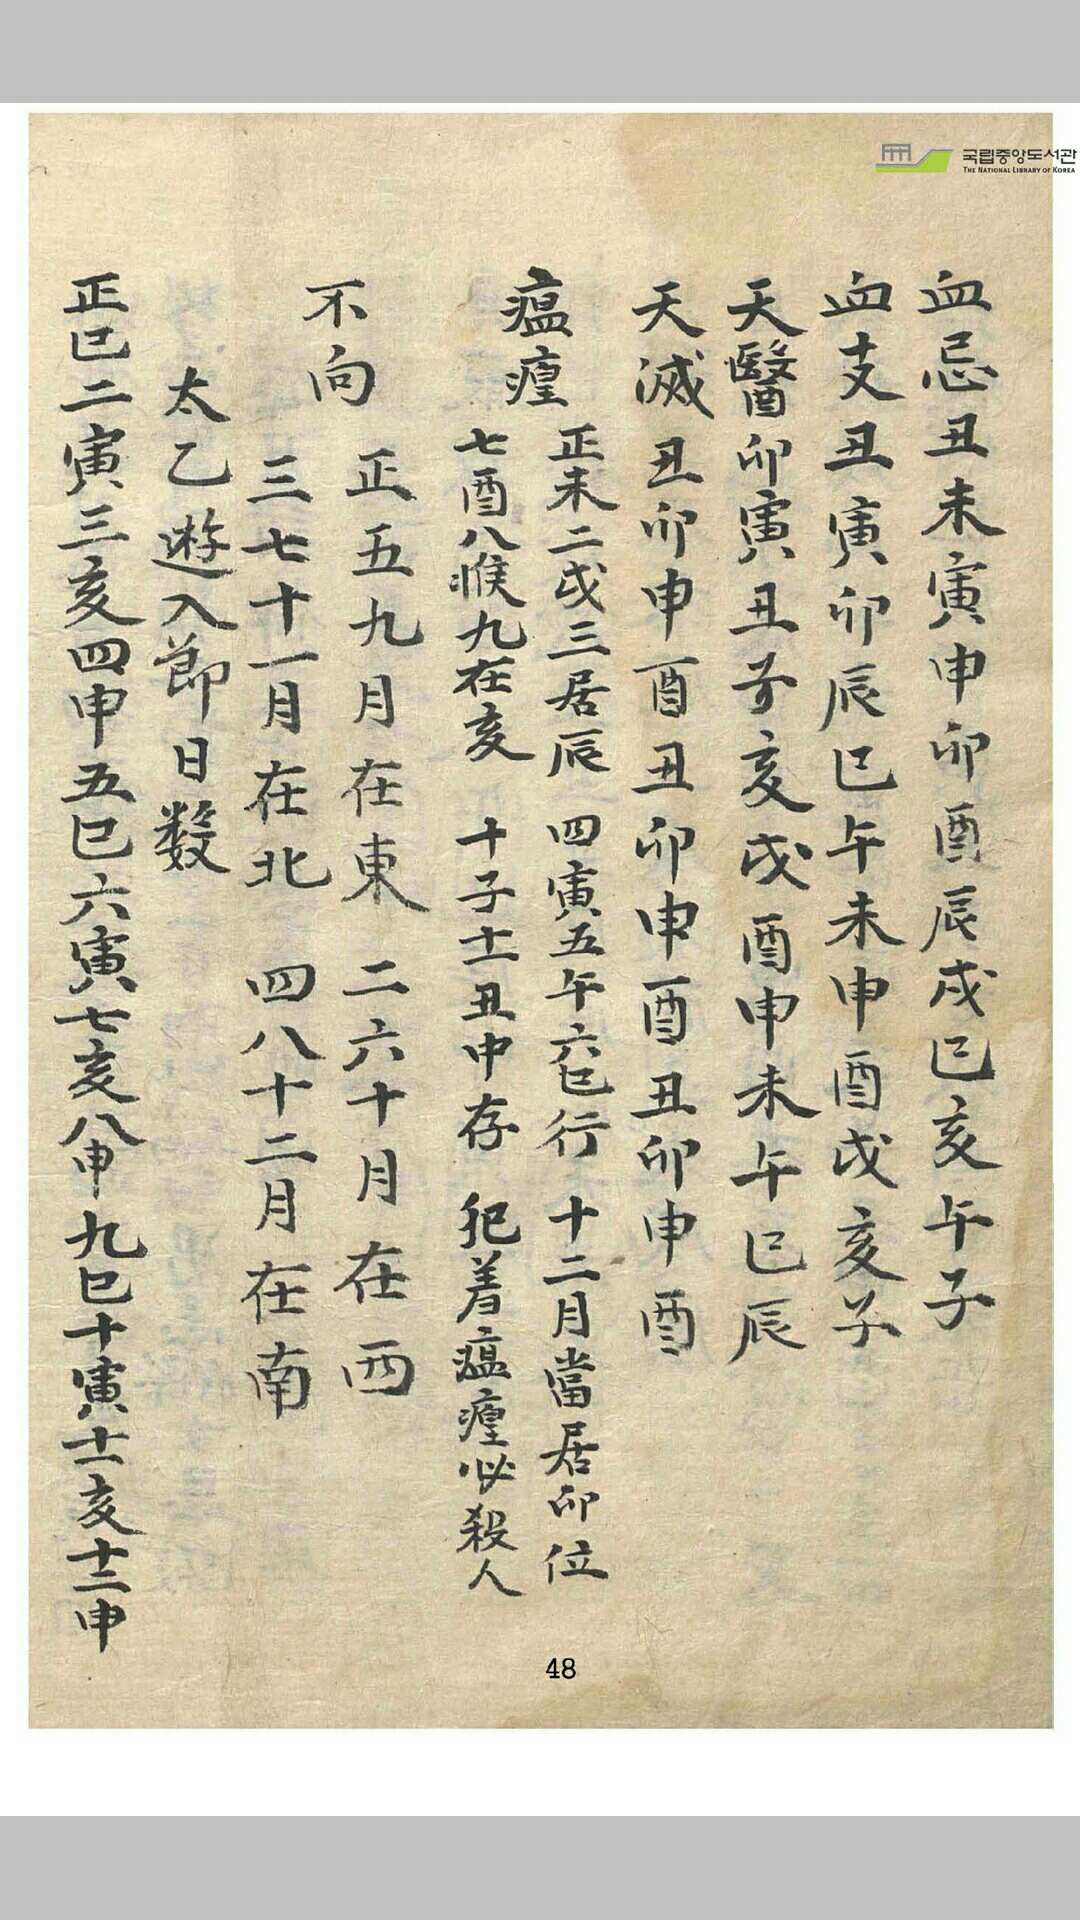 국립중앙도서관
THE NATIONAL LIBRARY OF KOREA
血忌丑未寅申卯酉辰戌巳亥午子
血支丑寅卯辰巳午未申酉戌亥子
天醫卯寅丑子亥戌酉申未午巳辰
天滅丑卯申酉丑卯申酉丑卯申酉
瘟㾮
正未二戌三居辰 四寅五午六巳行 十二月當居卯位
七酉八候九在亥 十子十一丑中存 犯着瘟㾮必殺人
不向
正五九月在東 二六十月在西
三七十一月在北 四八十二月在南
太乙遊入節日數
正巳二寅三亥四申五巳六寅七亥八申九巳十寅十一亥十二申
48